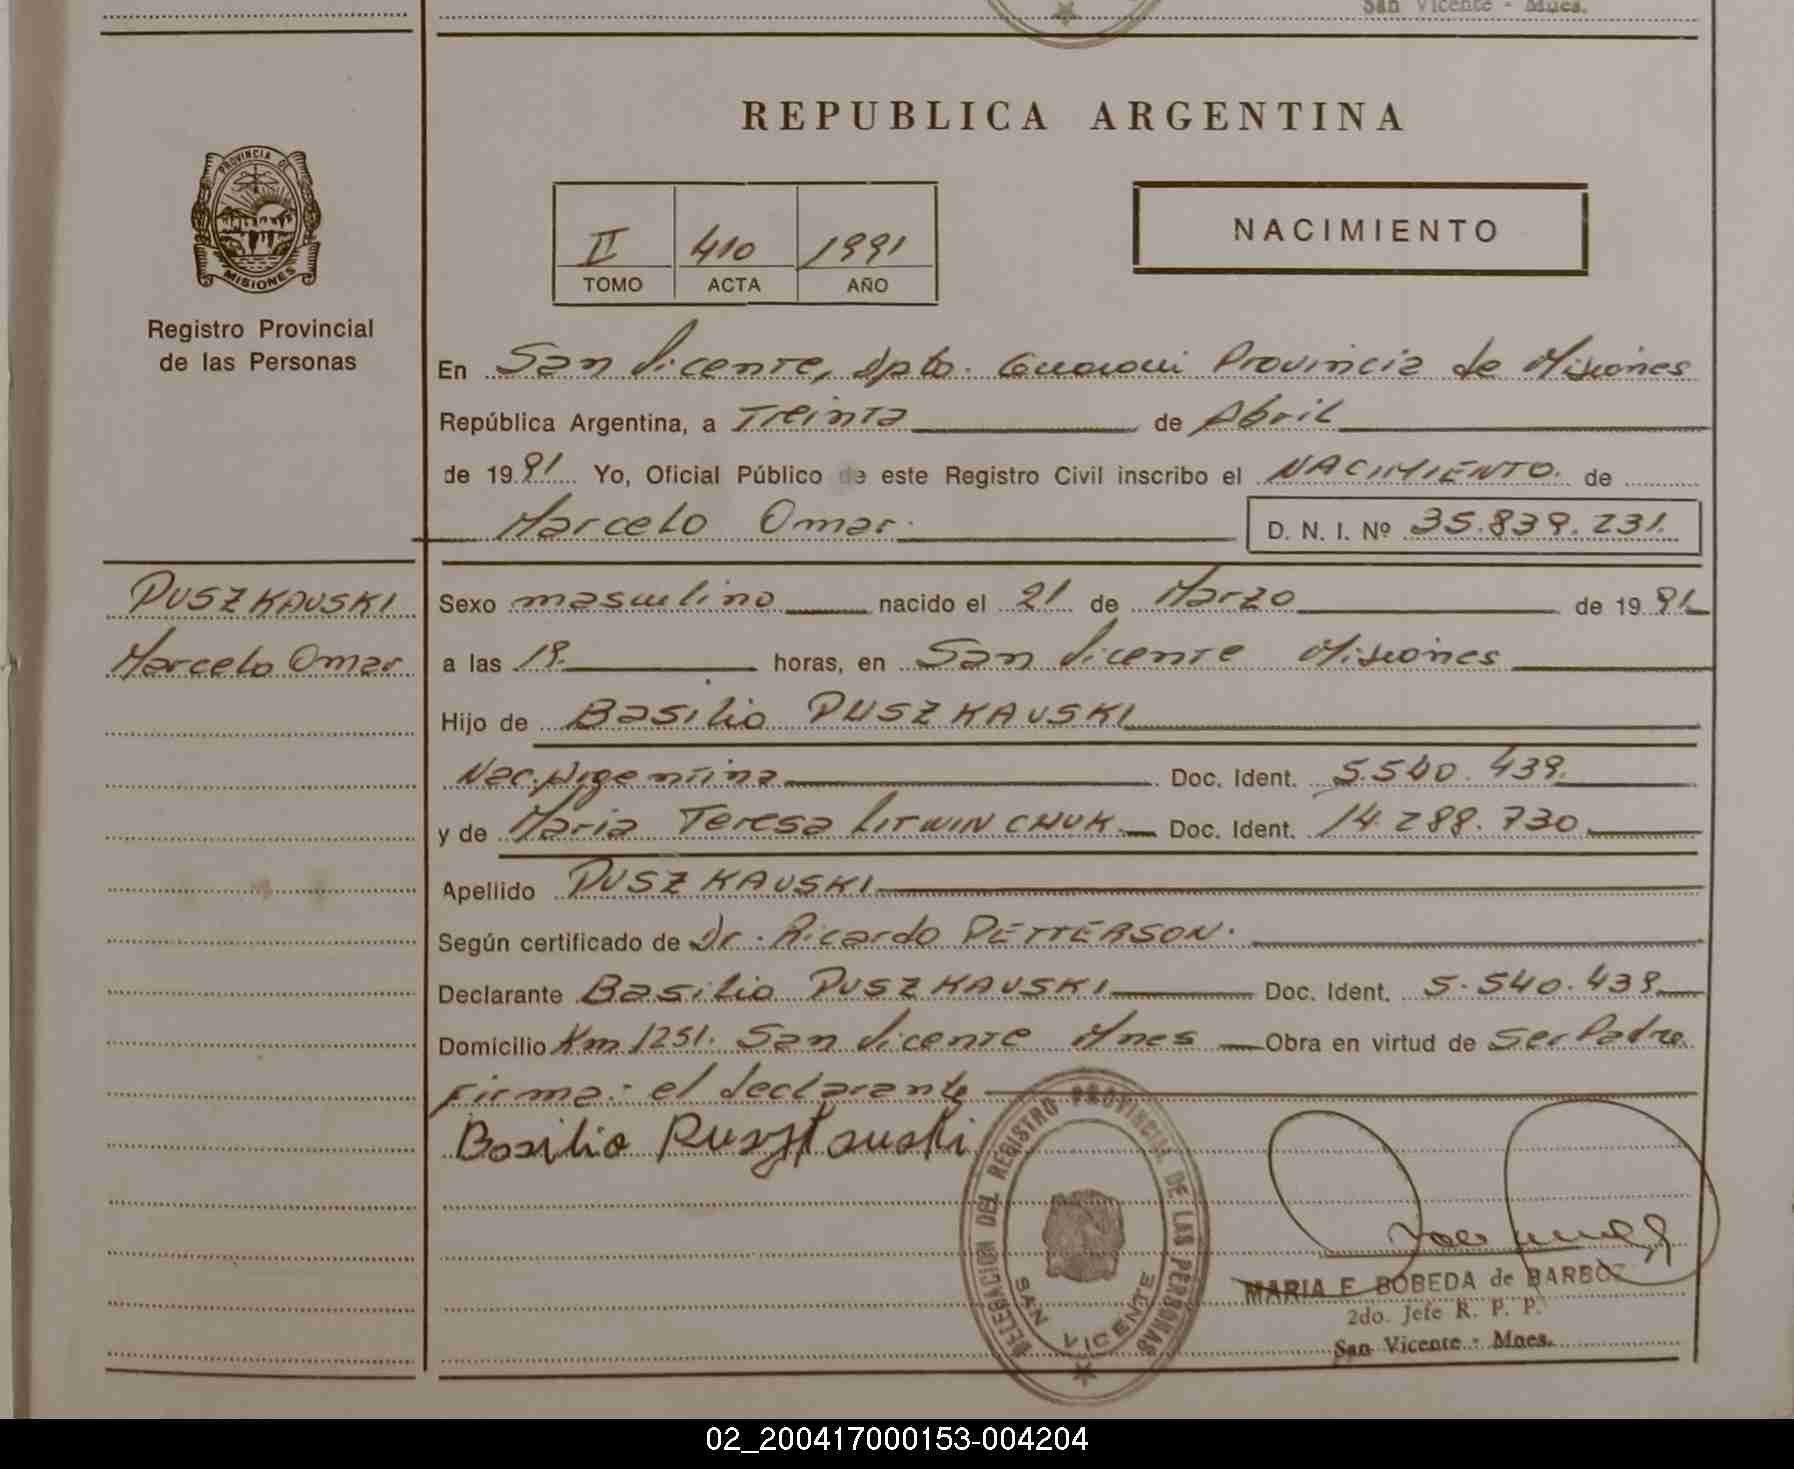 San Vicente - Mnes.
REPUBLICA ARGENTINA
PROVINCIA DE
MISIONES
Registro Provincial
de las Personas
II 410 1991
TOMO ACTA AÑO
NACIMIENTO
En San Vicente, Dpto. Guarani Provincia de Misiones
República Argentina, a Treinta de Abril
de 1991 Yo, Oficial Público de este Registro Civil inscribo el NACIMIENTO. de
Marcelo Omar. D. N. I. Nº 35.839.231.
PUSZKAUSKI
Marcelo Omar
Sexo masculino nacido el 21 de Marzo de 1991
a las 19. horas, en San Vicente Misiones
Hijo de Basilio PUSZKAUSKI
Nac. Argentina Doc. Ident. 5.540.439.
y de Maria Teresa LITWINCHUK. Doc. Ident. 14.288.730
Apellido PUSZKAUSKI
Según certificado de Dr. Ricardo PETTERSON.
Declarante Basilio PUSZKAUSKI Doc. Ident. 5.540.439
Domicilio Km 1251. San Vicente Mnes Obra en virtud de Ser Padre.
Firma: el declarante
Basilio Puszkauski
DELEGACION DEL REGISTRO PROVINCIAL DE LAS PERSONAS
SAN VICENTE
MARIA E. BOBEDA de BARBOZ
2do. Jefe R. P. P.
San Vicente - Mnes.
02_200417000153-004204